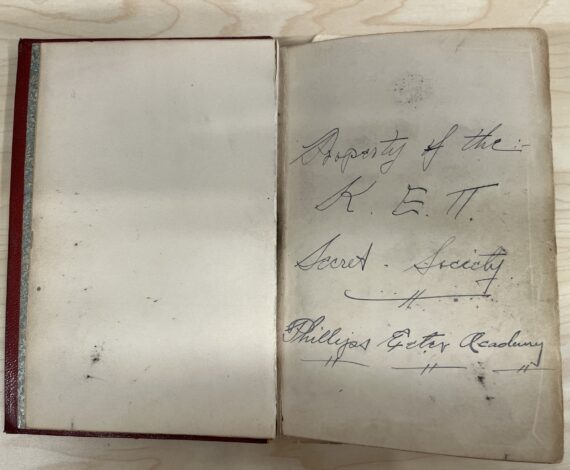 Property of the :-
K. E. Π.
Secret - Society
Phillips Exeter Academy